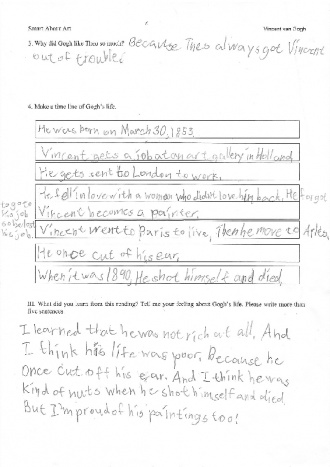 Smart About Art
Vincent van Gogh
3. Why did Gogh like Theo so much? Because Theo always got Vincent
out of trouble.
4. Make a time line of Gogh's life.
He was born on March 30, 1853.
Vincent gets a job at an art gallery in Holland
He gets sent to London to work.
He fell in love with a woman who didn't love him back, He forgot
to go to
his job
so he lost
his job.
Vincent becomes a painter.
Vincent went to Paris to live, Then he move to Arles,
He once cut of his ear.
When it was 1890, He shot himself and died.
III. What did you learn from this reading? Tell me your feeling about Gogh's life. Please write more than
five sentences
I learned that he was not rich at all, And
I think his life was poor, Because he
Once cut off his ear. And I think he was
Kind of nuts when he shot himself and died
But I'm proud of his paintings too!